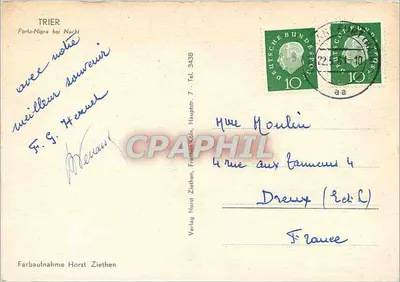 TRIER
Porta-Nigra bei Nacht
avec notre
meilleur souvenir
F. G.
Farbaufnahme Horst Ziethen
Verlag Horst Ziethen, Franken-Köln, Hauptstr. 7 - Tel. 3438
DEUTSCHE BUNDESPOST
10
10
aa
CPAPHIL
Mme Moulin
4 rue aux Tanneurs 4
Dreux (E et L)
France